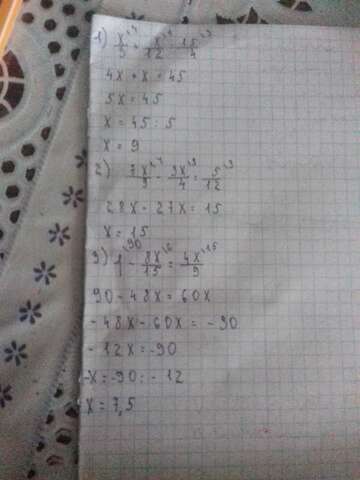 1) x/3\4 + x/12\1 = 15/4\3
4x + x = 45
5x = 45
x = 45 : 5
x = 9
2) 7x/9\4 - 3x/4\9 = 5/12\3
28x - 27x = 15
x = 15
3) 1\90 - 8x/15\6 = 4x/9\15
90 - 48x = 60x
- 48x - 60x = - 90
- 12x = -90
-x = -90 : - 12
x = 7,5